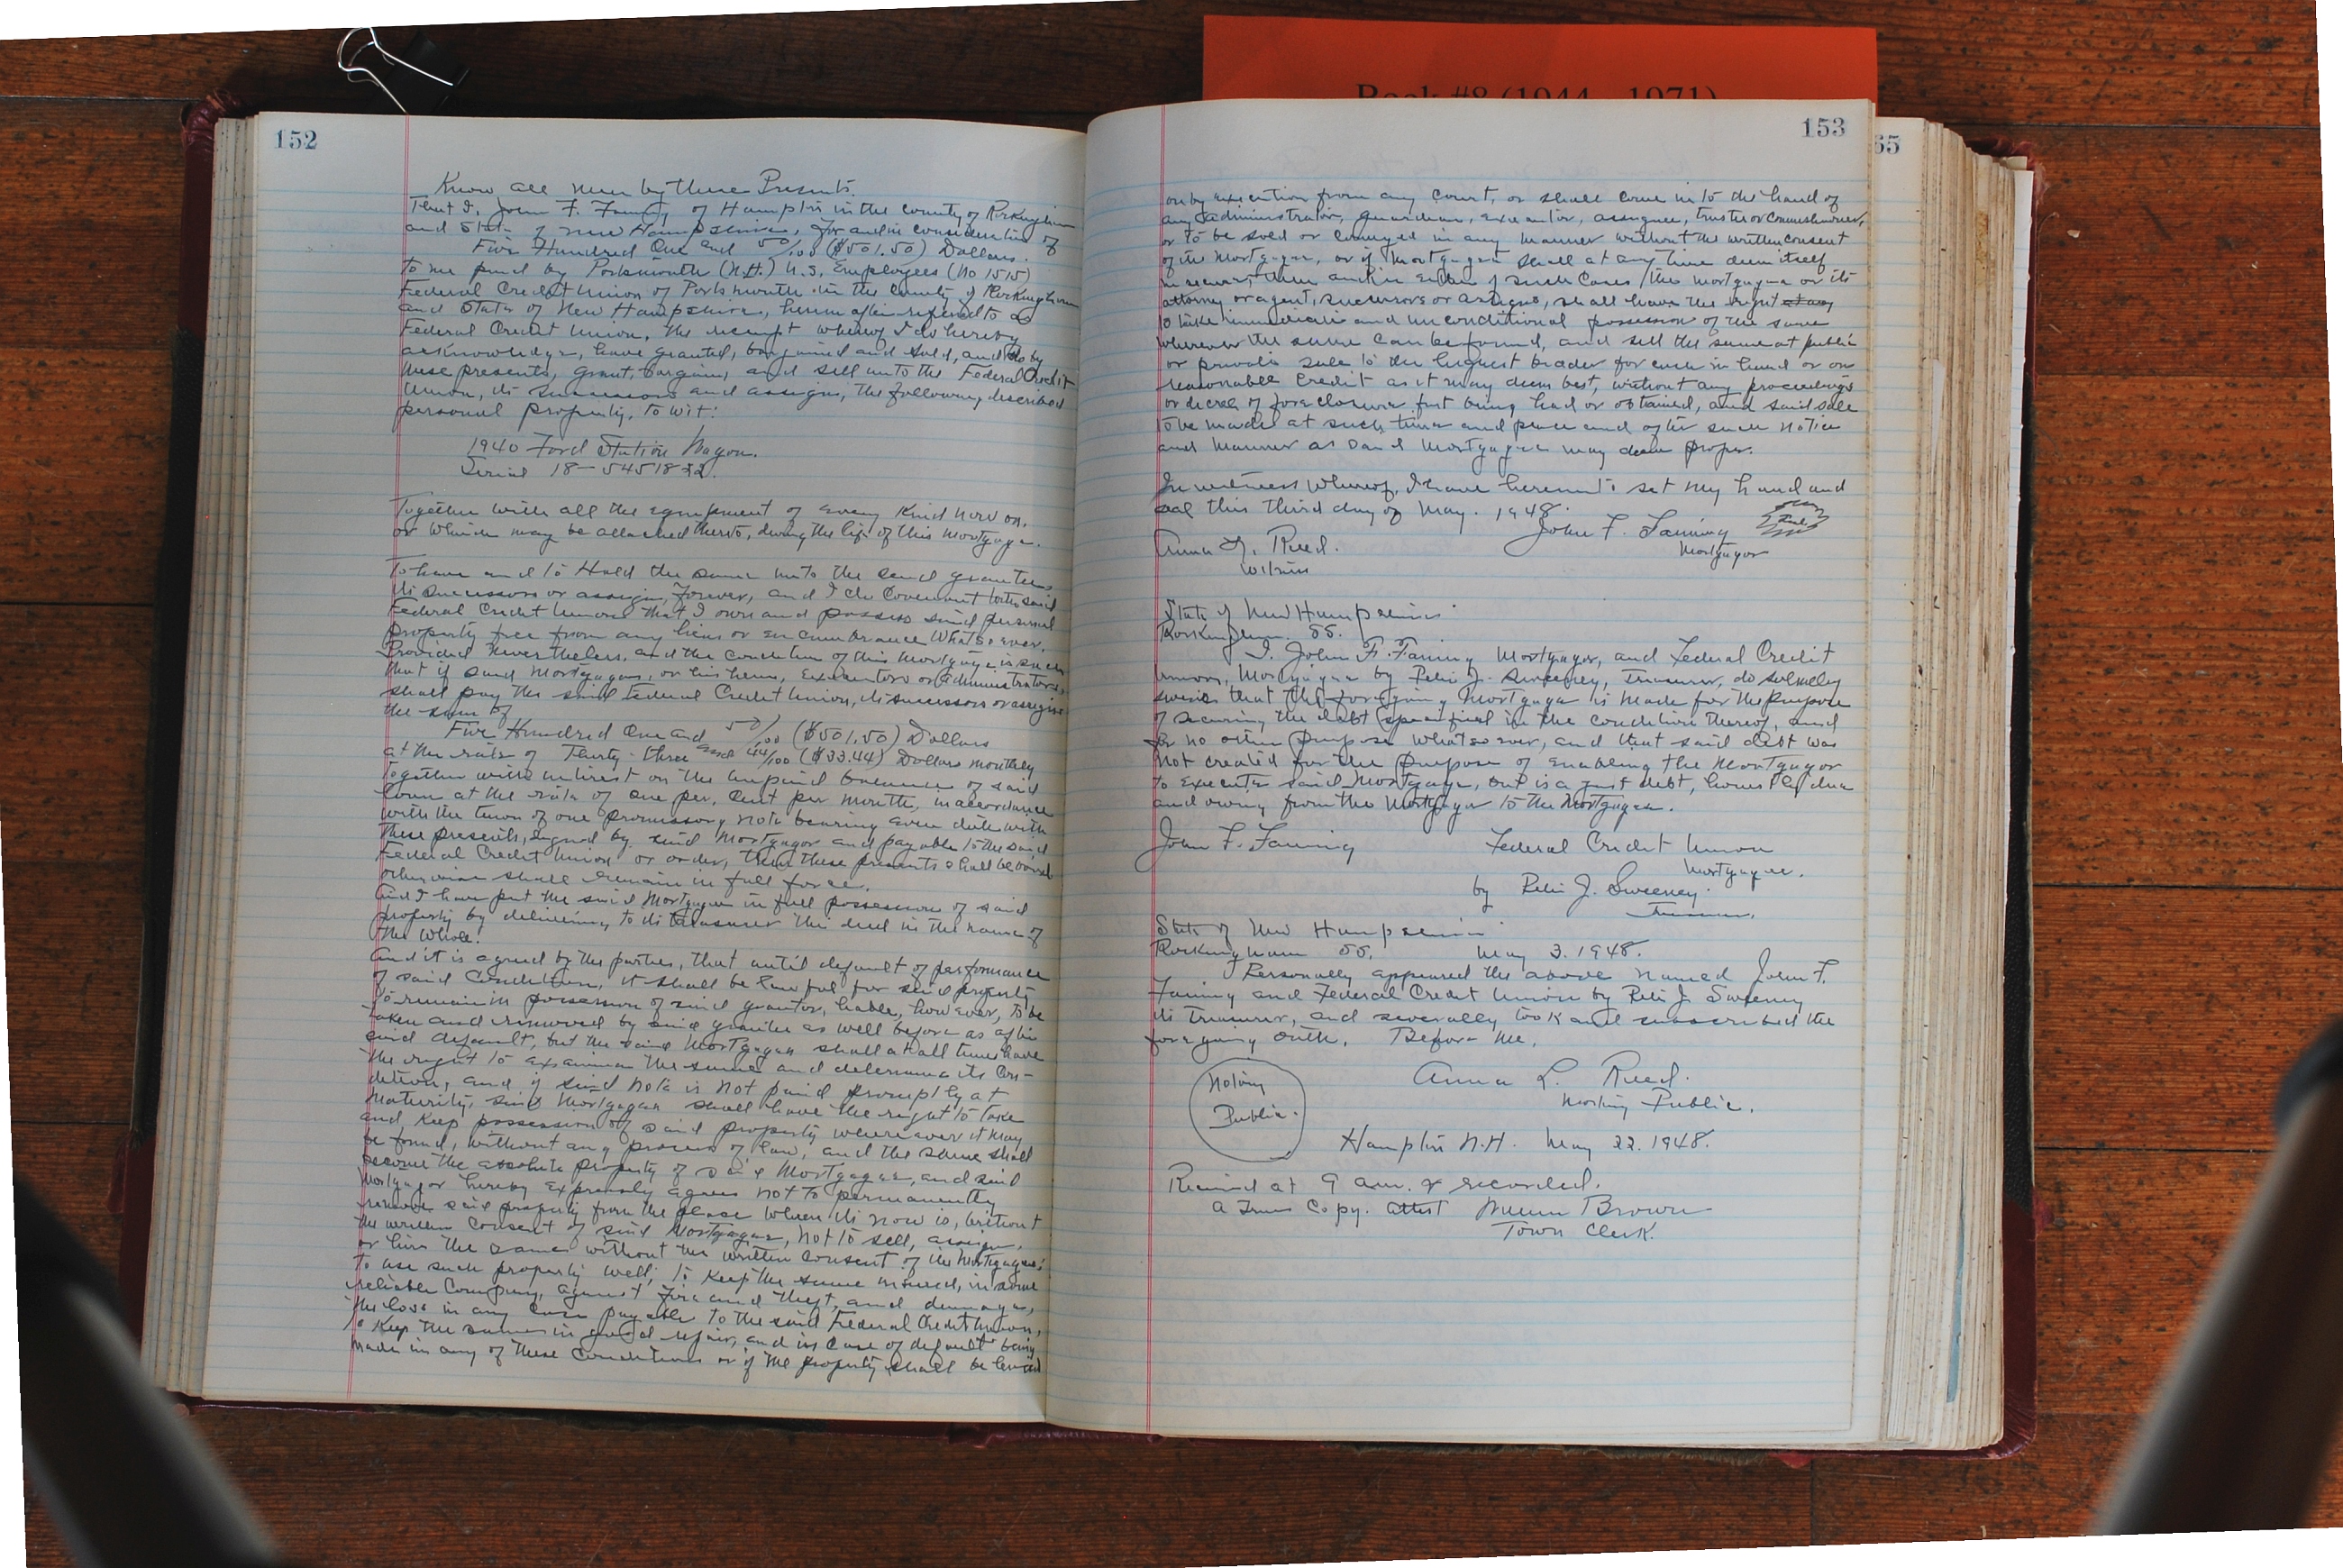 Book #8 (1944 - 1971)
152
Know all men by these Presents.
That I, John F. Faning of Hampton in the county of Rockingham
and State of New Hampshire, for and in consideration of
Five Hundred One and 50/100 ($501.50) Dollars.
to me paid by Portsmouth (N.H.) U.S. Employees (No 1515)
Federal Credit Union of Portsmouth in the County of Rockingham
and State of New Hampshire, herein after refered to as
Federal Credit Union, the receipt whereof I do hereby
acknowledge, have granted, bargained and sold, and do by
these presents, grant, bargain, and sell unto the Federal Credit
Union, its successors and assigns, the following described
personal property, to wit:
1940 Ford Station Wagon.
Serial 18-5451832.
Together with all the equipment of every kind now on,
or which may be attached thereto, during the life of this mortgage.
To have and to Hold the same unto the said grantee
its successors or assigns, forever, and I do covenant with said
Federal Credit Union that I own and possess said personal
property free from any liens or encumbrance whatsoever.
Provided nevertheless, and the condition of this mortgage is such
that if said mortgagor, or his heirs, executors or administrators,
shall pay the said Federal Credit Union, its successors or assigns
the sum of
Five Hundred One and 50/100 ($501.50) Dollars
at the rate of Thirty-three and 44/100 ($33.44) Dollars monthly
together with interest on the unpaid balance of said
loan at the rate of one per. cent per month, in accordance
with the terms of one promissory note bearing even date with
these presents, signed by said mortgagor and payable to the said
Federal Credit Union or order, then these presents shall be void
otherwise shall remain in full force.
And I have put the said mortgagee in full possession of said
property by delivering to its treasurer this deed in the name of
the whole.
And it is agreed by the parties, that until default of performance
of said condition, it shall be lawful for said property
to remain in possession of said grantor, liable, however, to be
taken and removed by said grantee as well before as after
said default, but the said mortgagee shall at all times have
the right to examine the same and determine its con-
dition, and if said note is not paid promptly at
maturity, said mortgagee shall have the right to take
and keep possession of said property where ever it may
be found, without any process of law, and the same shall
become the absolute property of said Mortgagee, and said
Mortgagor hereby expressly agrees not to permanently
remove said property from the place where its now is, without
the written consent of said Mortgagee, not to sell, assign,
or hire the same without the written consent of the Mortgagee;
to use such property well; to keep the same insured, in some
reliable Company, against fire and theft, and damage,
the loss in any case payable to the said Federal Credit Union,
to keep the same in good repair, and in case of default being
made in any of these conditions or if the property shall be levied
153
65
on by execution from any court, or shall come into the hand of
any administrator, guardian, executor, assignee, trustee or commissioner,
or to be sold or conveyed in any manner without the written consent
of the Mortgagee, or if Mortgagee shall at any time deem itself
insecure, then and in either of such cases, the mortgagee or its
attorney or agent, successors or assigns, shall have the right at any
to take immediate and unconditional possession of the same
wherever the same can be found, and sell the same at public
or private sale to the highest bidder for cash in hand or on
reasonable credit as it may deem best, without any proceedings
or decree of foreclosure first being had or obtained, and said sale
to be made at such time and place and after such notice
and manner as said Mortgagee may deem proper.
In witness whereof, I have hereunto set my hand and
seal this third day of May. 1948.
John F. Faning
Seal
Mortgagor
Anna L. Reed.
Witness
State of New Hampshire
Rockingham. SS.
I, John F. Faning Mortgagor, and Federal Credit
Union, Mortgagee by J. Sweeney, Treasurer, do solemnly
swear that the foregoing Mortgage is made for the purpose
of securing the debt specified in the condition thereof, and
for no other purpose whatsoever, and that said debt was
not created for the purpose of enabling the mortgagor
to execute said mortgage, but is a just debt, honestly due
and owing from the Mortgagor to the Mortgagee.
John F. Faning
Federal Credit Union
Mortgagee.
by J. Sweeney.
Treasurer.
State of New Hampshire
Rockingham SS. May 3. 1948.
Personally appeared the above named John F.
Faning and Federal Credit Union by J. Sweeney
its treasurer, and severally took and subscribed the
foregoing oath. Before me,
Anna L. Reed.
Notary Public.
Notary
Public.
Hampton N.H. May 22. 1948.
Received at 9 a.m. & recorded.
A True Copy. Attest Brown
Town Clerk.